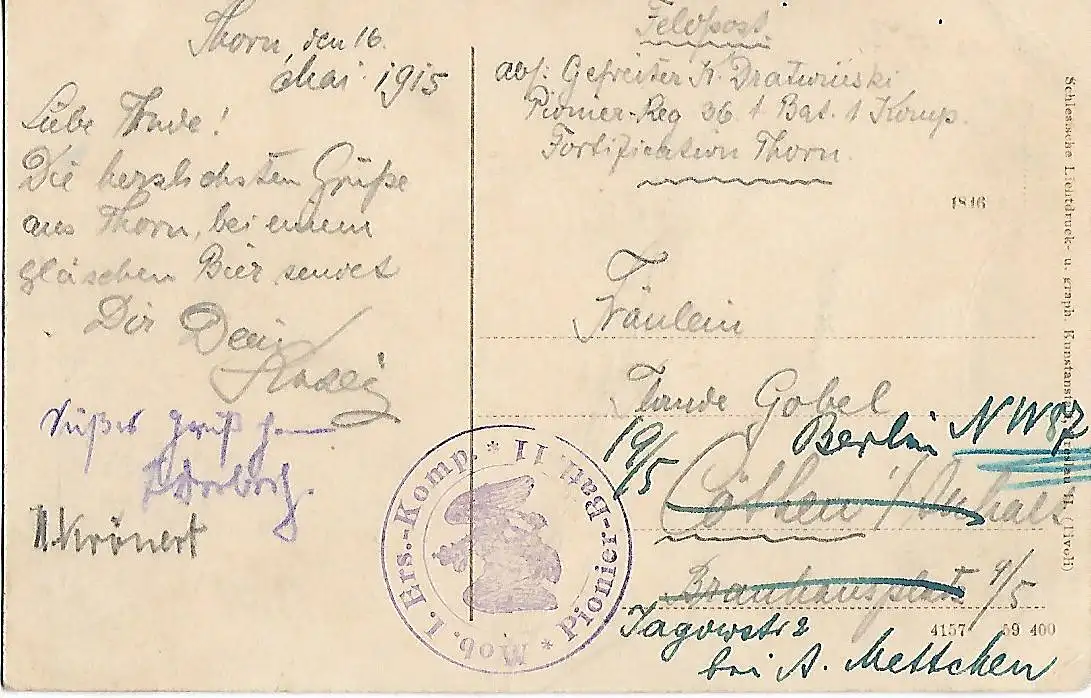 Thorn, den 16.
Mai 1915
Liebe
Die herzlichsten Grüße
aus Thorn, bei einem
gläschen Bier sendet
Dir Dein
H. Krönert
Feldpost
abs: Gefreiter K. Dratwinski
Pionier-Reg 36 1 Bat. 1 Komp.
Fortification Thorn.
1846
Fräulein
Gobel
19/5 Berlin NW 87
Cöthen i/Anhalt
Brauhausplatz 9/5
Jagowstr 2
bei A. Mettchen
4157 59 400
Mob. I. Ers.-Komp. * II Batl. Pionier- *
Schlesische Lichtdruck- u. graph. Kunstanstalt, Breslau II. (Tivoli)